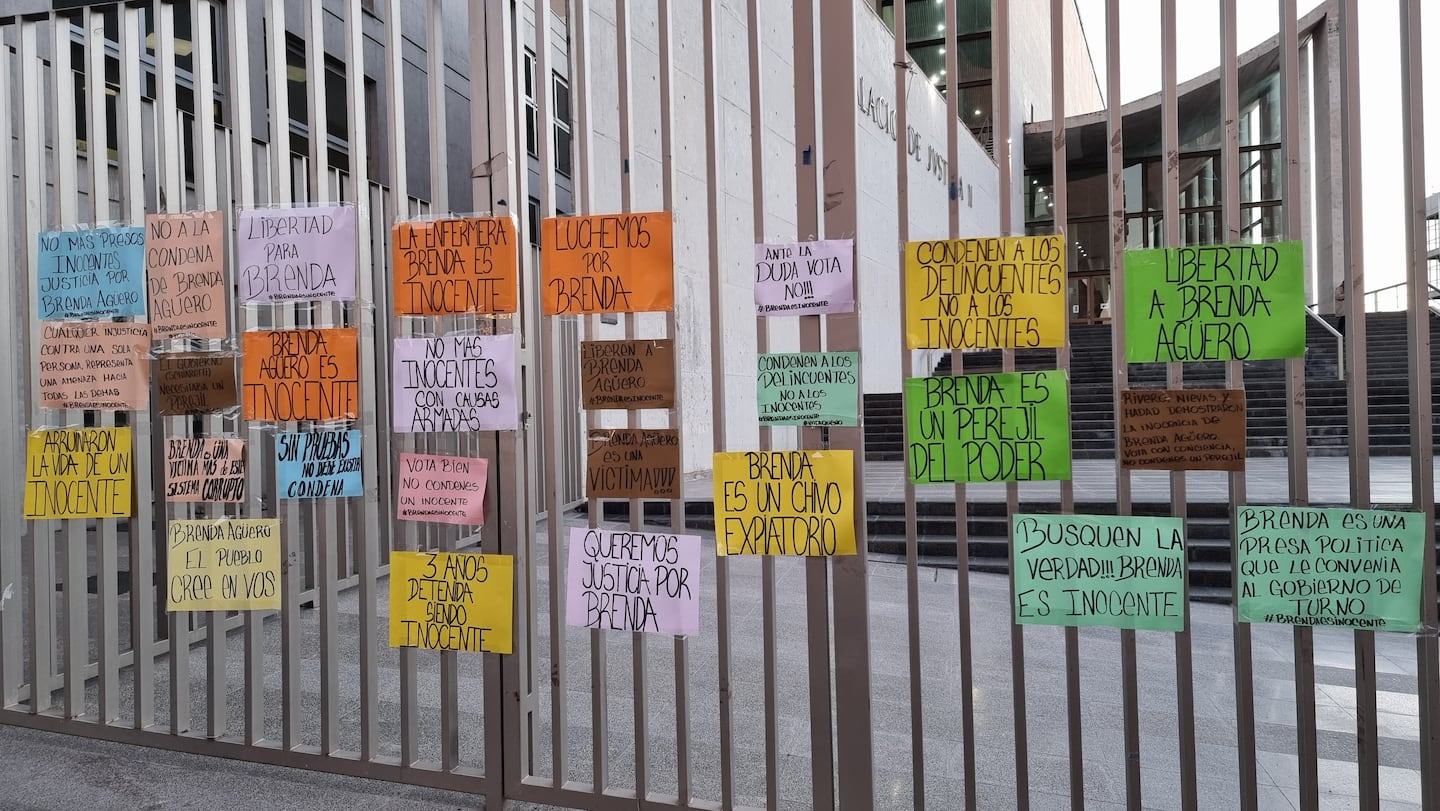 NO MAS PRESOS
INOCENTES
JUSTICIA POR
BRENDA AGÜERO
NO A LA
CONDENA
DE BRENDA
AGÜERO
#BRENDAESINOCENTE
LIBERTAD
PARA
BRENDA
#BRENDAESINOCENTE
LA ENFERMERA
BRENDA ES
INOCENTE
LUCHEMOS
POR
BRENDA
ANTE LA
DUDA VOTA
NO!!!
#BRENDAESINOCENTE
CONDENEN A LOS
DELINCUENTES
NO A LOS
INOCENTES
LIBERTAD
A BRENDA
AGÜERO
PALACIO DE JUSTICIA II
CUALQUIER INJUSTICIA
CONTRA UNA SOLA
PERSONA, REPRESENTA
UNA AMENAZA HACIA
TODAS LAS DEMAS
#BRENDAESINOCENTE
EL GOBIERNO
(SCHIARETTI)
NECESITABA UN
PEREJIL
BRENDA
AGÜERO ES
INOCENTE
NO MAS
INOCENTES
CON CAUSAS
ARMADAS
LIBEREN A
BRENDA
AGÜERO
#BRENDAESINOCENTE
CONDENEN A LOS
DELINCUENTES
NO A LOS
INOCENTES
#BRENDAESINOCENTE
BRENDA ES
UN PEREJIL
DEL PODER
RIVERO NIEVAS Y
HADAD DEMOSTRARON
LA INOCENCIA DE
BRENDA AGÜERO.
VOTA CON CONCIENCIA,
NO CONDENES UN PEREJIL
ARRUINARON
LA VIDA DE UN
INOCENTE
BRENDA ES UNA
VICTIMA MAS DE ESTE
SISTEMA CORRUPTO
SIN PRUEBAS
NO DEBE EXISTIR
CONDENA
VOTA BIEN
NO CONDENES
UN INOCENTE
#BRENDAESINOCENTE
BRENDA AGÜERO
ES UNA
VICTIMA!!!!
BRENDA
ES UN CHIVO
EXPIATORIO
BRENDA AGÜERO
EL PUEBLO
CREE EN VOS
3 AÑOS
DETENIDA
SIENDO
INOCENTE
QUEREMOS
JUSTICIA POR
BRENDA
BUSQUEN LA
VERDAD!!! BRENDA
ES INOCENTE
BRENDA ES UNA
PRESA POLITICA
QUE LE CONVENIA
AL GOBIERNO DE
TURNO
#BRENDAESINOCENTE